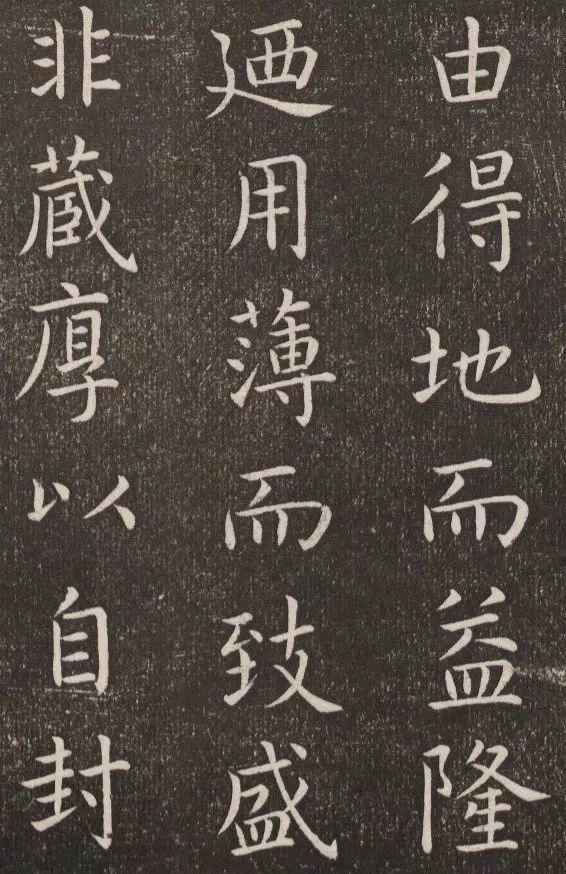 由得地而益隆
廼用薄而致盛
非蔵厚以自封